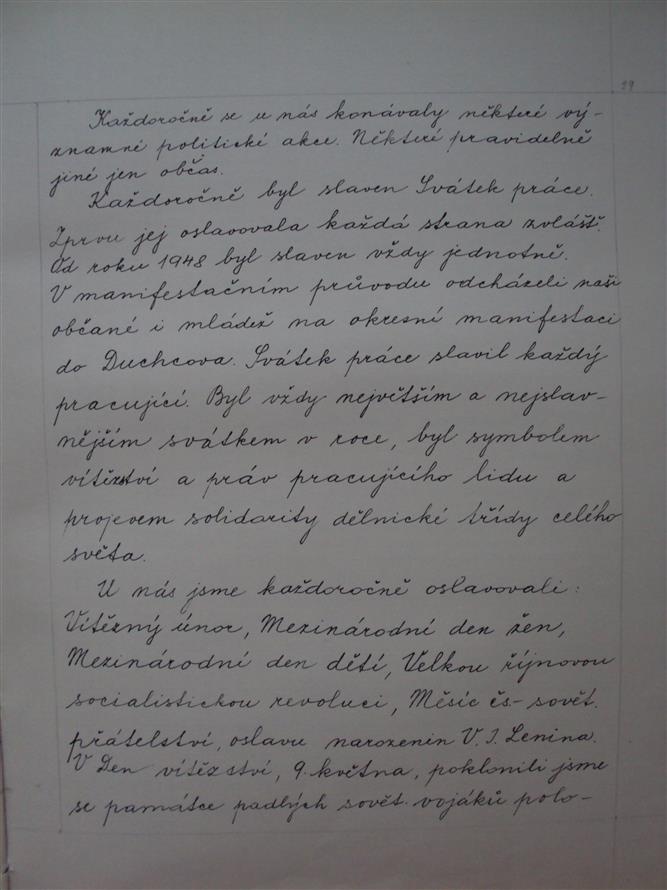 29
Každoročně se u nás konávaly některé vý-
znamné politické akce. Některé pravidelně
jiné jen občas.
Každoročně byl slaven Svátek práce.
Zprvu jej oslavovala každá strana zvlášť.
Od roku 1948 byl slaven vždy jednotně.
V manifestačním průvodu odcházeli naši
občané i mládež na okresní manifestaci
do Duchcova. Svátek práce slavil každý
pracující. Byl vždy největším a nejslav-
nějším svátkem v roce, byl symbolem
vítězství a práv pracujícího lidu a
projevem solidarity dělnické třídy celého
světa.
U nás jsme každoročně oslavovali:
Vítězný únor, Mezinárodní den žen,
Mezinárodní den dětí, Velkou říjnovou
socialistickou revoluci, Měsíc čs.-sovět.
přátelství, oslavu narozenin V. I. Lenina.
V Den vítězství, 9. května, poklonili jsme
se památce padlých sovět. vojáků polo-